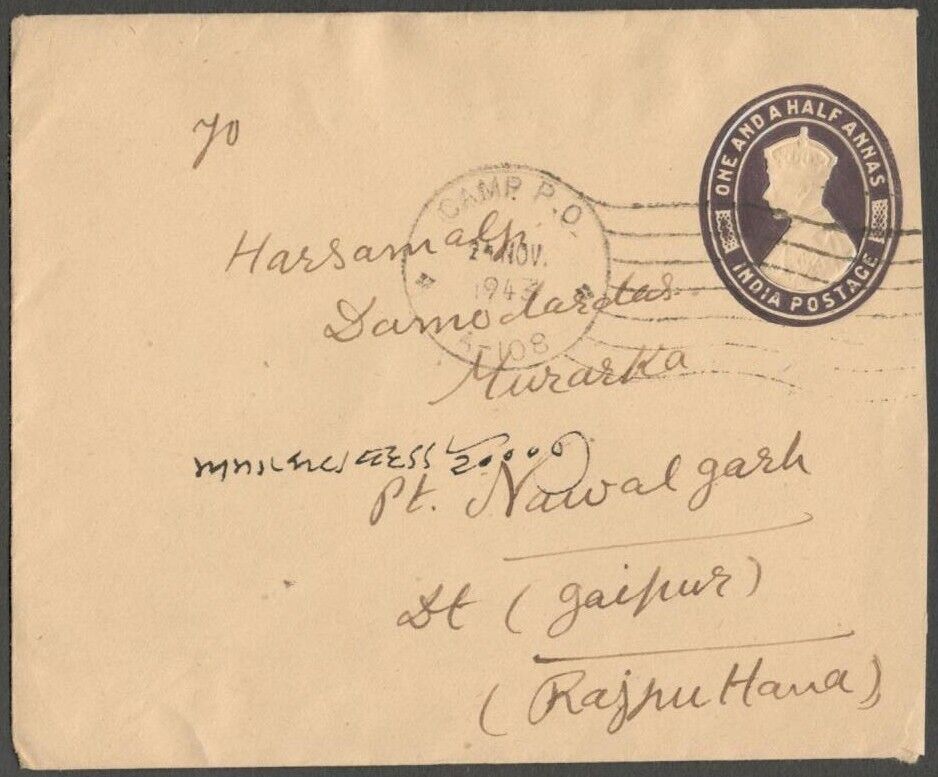 ONE AND A HALF ANNAS
INDIA POSTAGE
CAMP. P.O.
NOV.
1943
-108
To
Harsamalji
Damodardas
Murarka
Pt. Nawalgarh
Dt (Jaipur)
(Rajputtana)